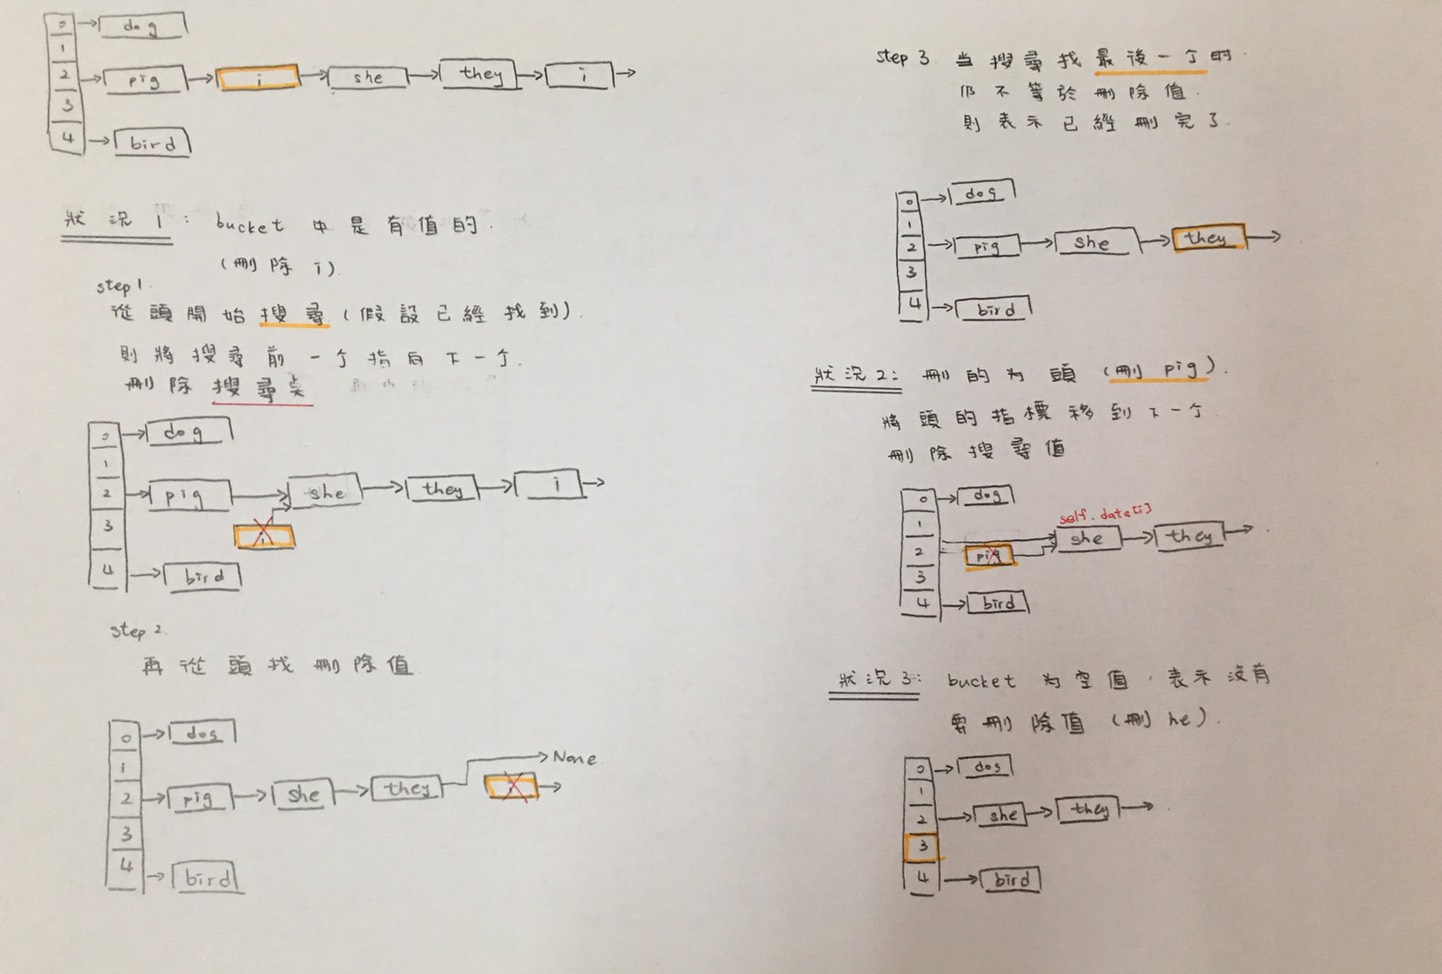 0 dog
1
2 pig i she they i
3
4 bird
狀況1：bucket 中是有值的.
(刪除 i).
step 1.
從頭開始搜尋(假設已經找到).
則將搜尋前一个指向下一个.
刪除搜尋点
0 dog
1
2 pig she they i
3
4 bird
step 2.
再從頭找刪除值
0 dog
1 None
2 pig she they
3
4 bird
step 3. 当搜尋找最後一个的.
仍不等於刪除值.
則表示已經刪完了.
0 dog
1
2 pig she they
3
4 bird
狀況2：刪的为頭(刪 pig).
將頭的指標移到下一个.
刪除搜尋值
0 dog
1 self.data[i]
2 pig she they
3
4 bird
狀況3：bucket 为空值，表示沒有
要刪除值(刪 he).
0 dog
1
2 she they
3
4 bird